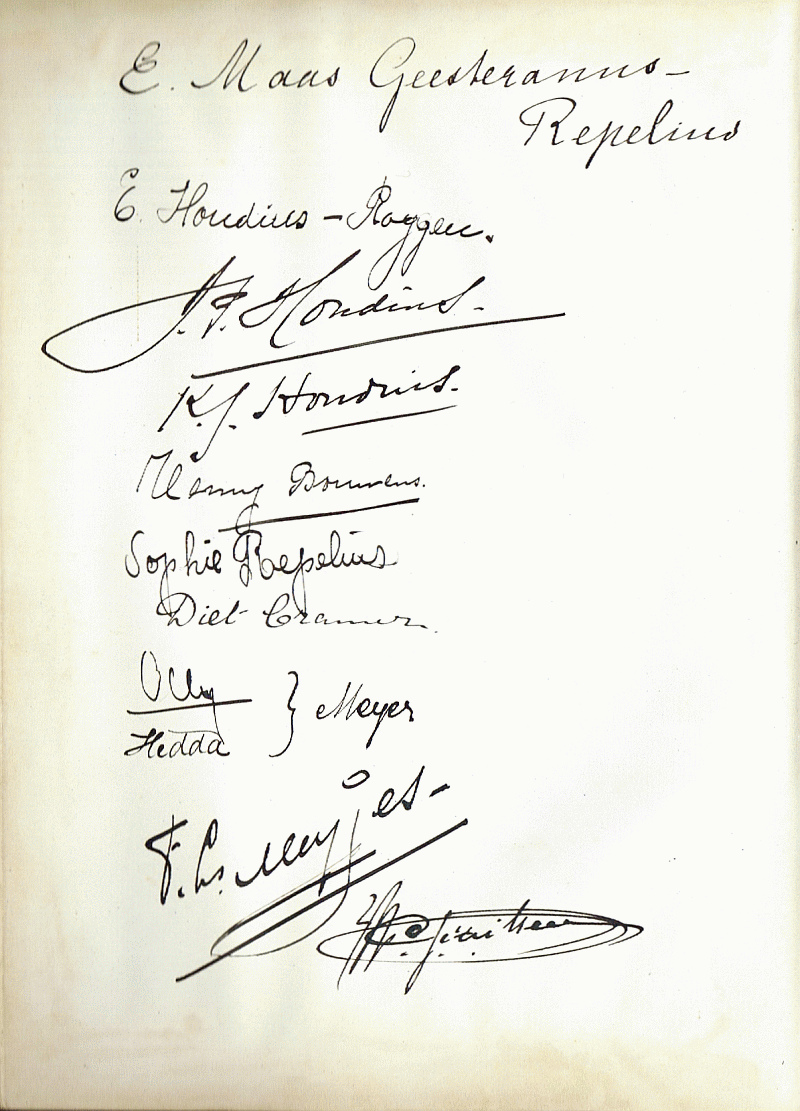 E. Maas Geesteranus-
Repelius
E. Hondius - Roggen.
J. P. Hondius.
K. J. Hondius.
Bouwens.
Sophie Repelius
Diet Cramer.
Olly
Hedda } Meyer